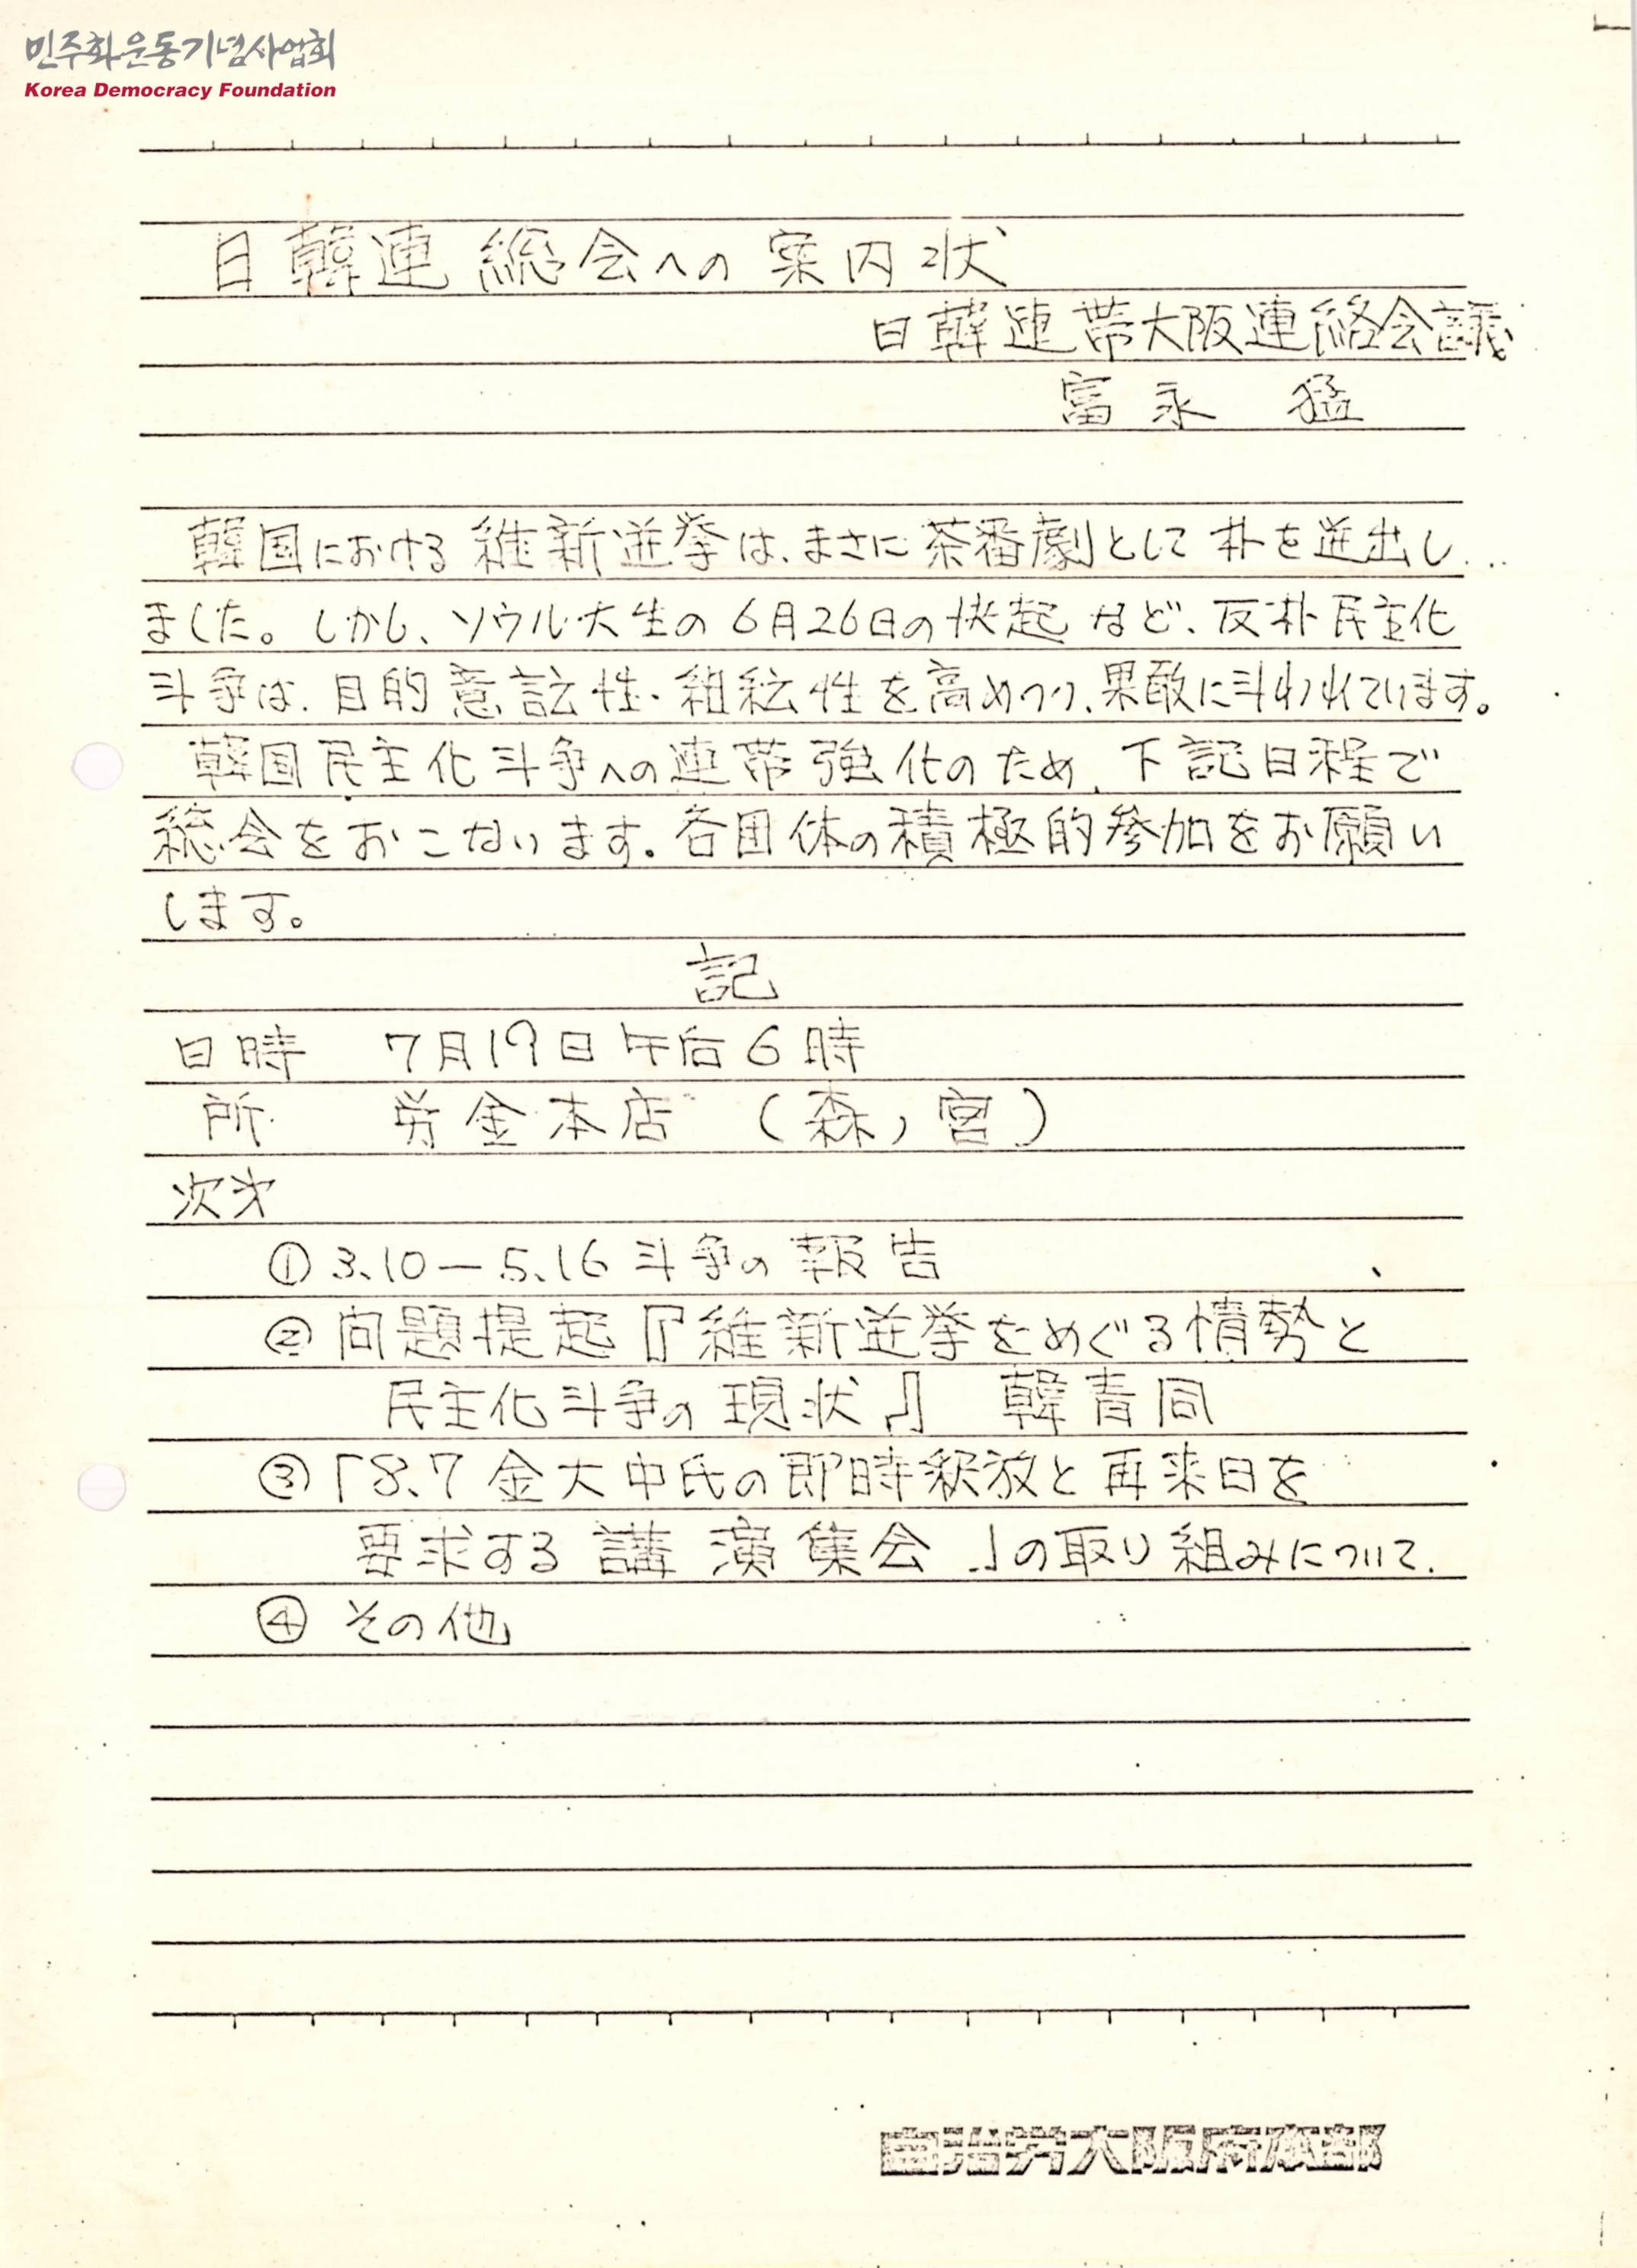 민주화운동기념사업회
Korea Democracy Foundation
日韓連 総会への案内状
日韓連帯大阪連絡会議
富永 猛
韓国における維新選挙は、まさに茶番劇として朴を選出し
ました。しかし、ソウル大生の6月26日の決起など、反朴民主化
斗争は、目的意識性・組織性を高めつつ、果敢に斗われています。
韓国民主化斗争への連帯強化のため、下記日程で
総会をおこないます。各団体の積極的参加をお願い
します。
記
日時 7月19日午后6時
所 労金本店 (森ノ宮)
次才
① 3.10ー5.16斗争の報告
② 問題提起『維新選挙をめぐる情勢と
民主化斗争の現状』 韓青同
③「8.7金大中氏の即時釈放と再来日を
要求する講演集会」の取り組みについて.
④ その他
自治労大阪府本部